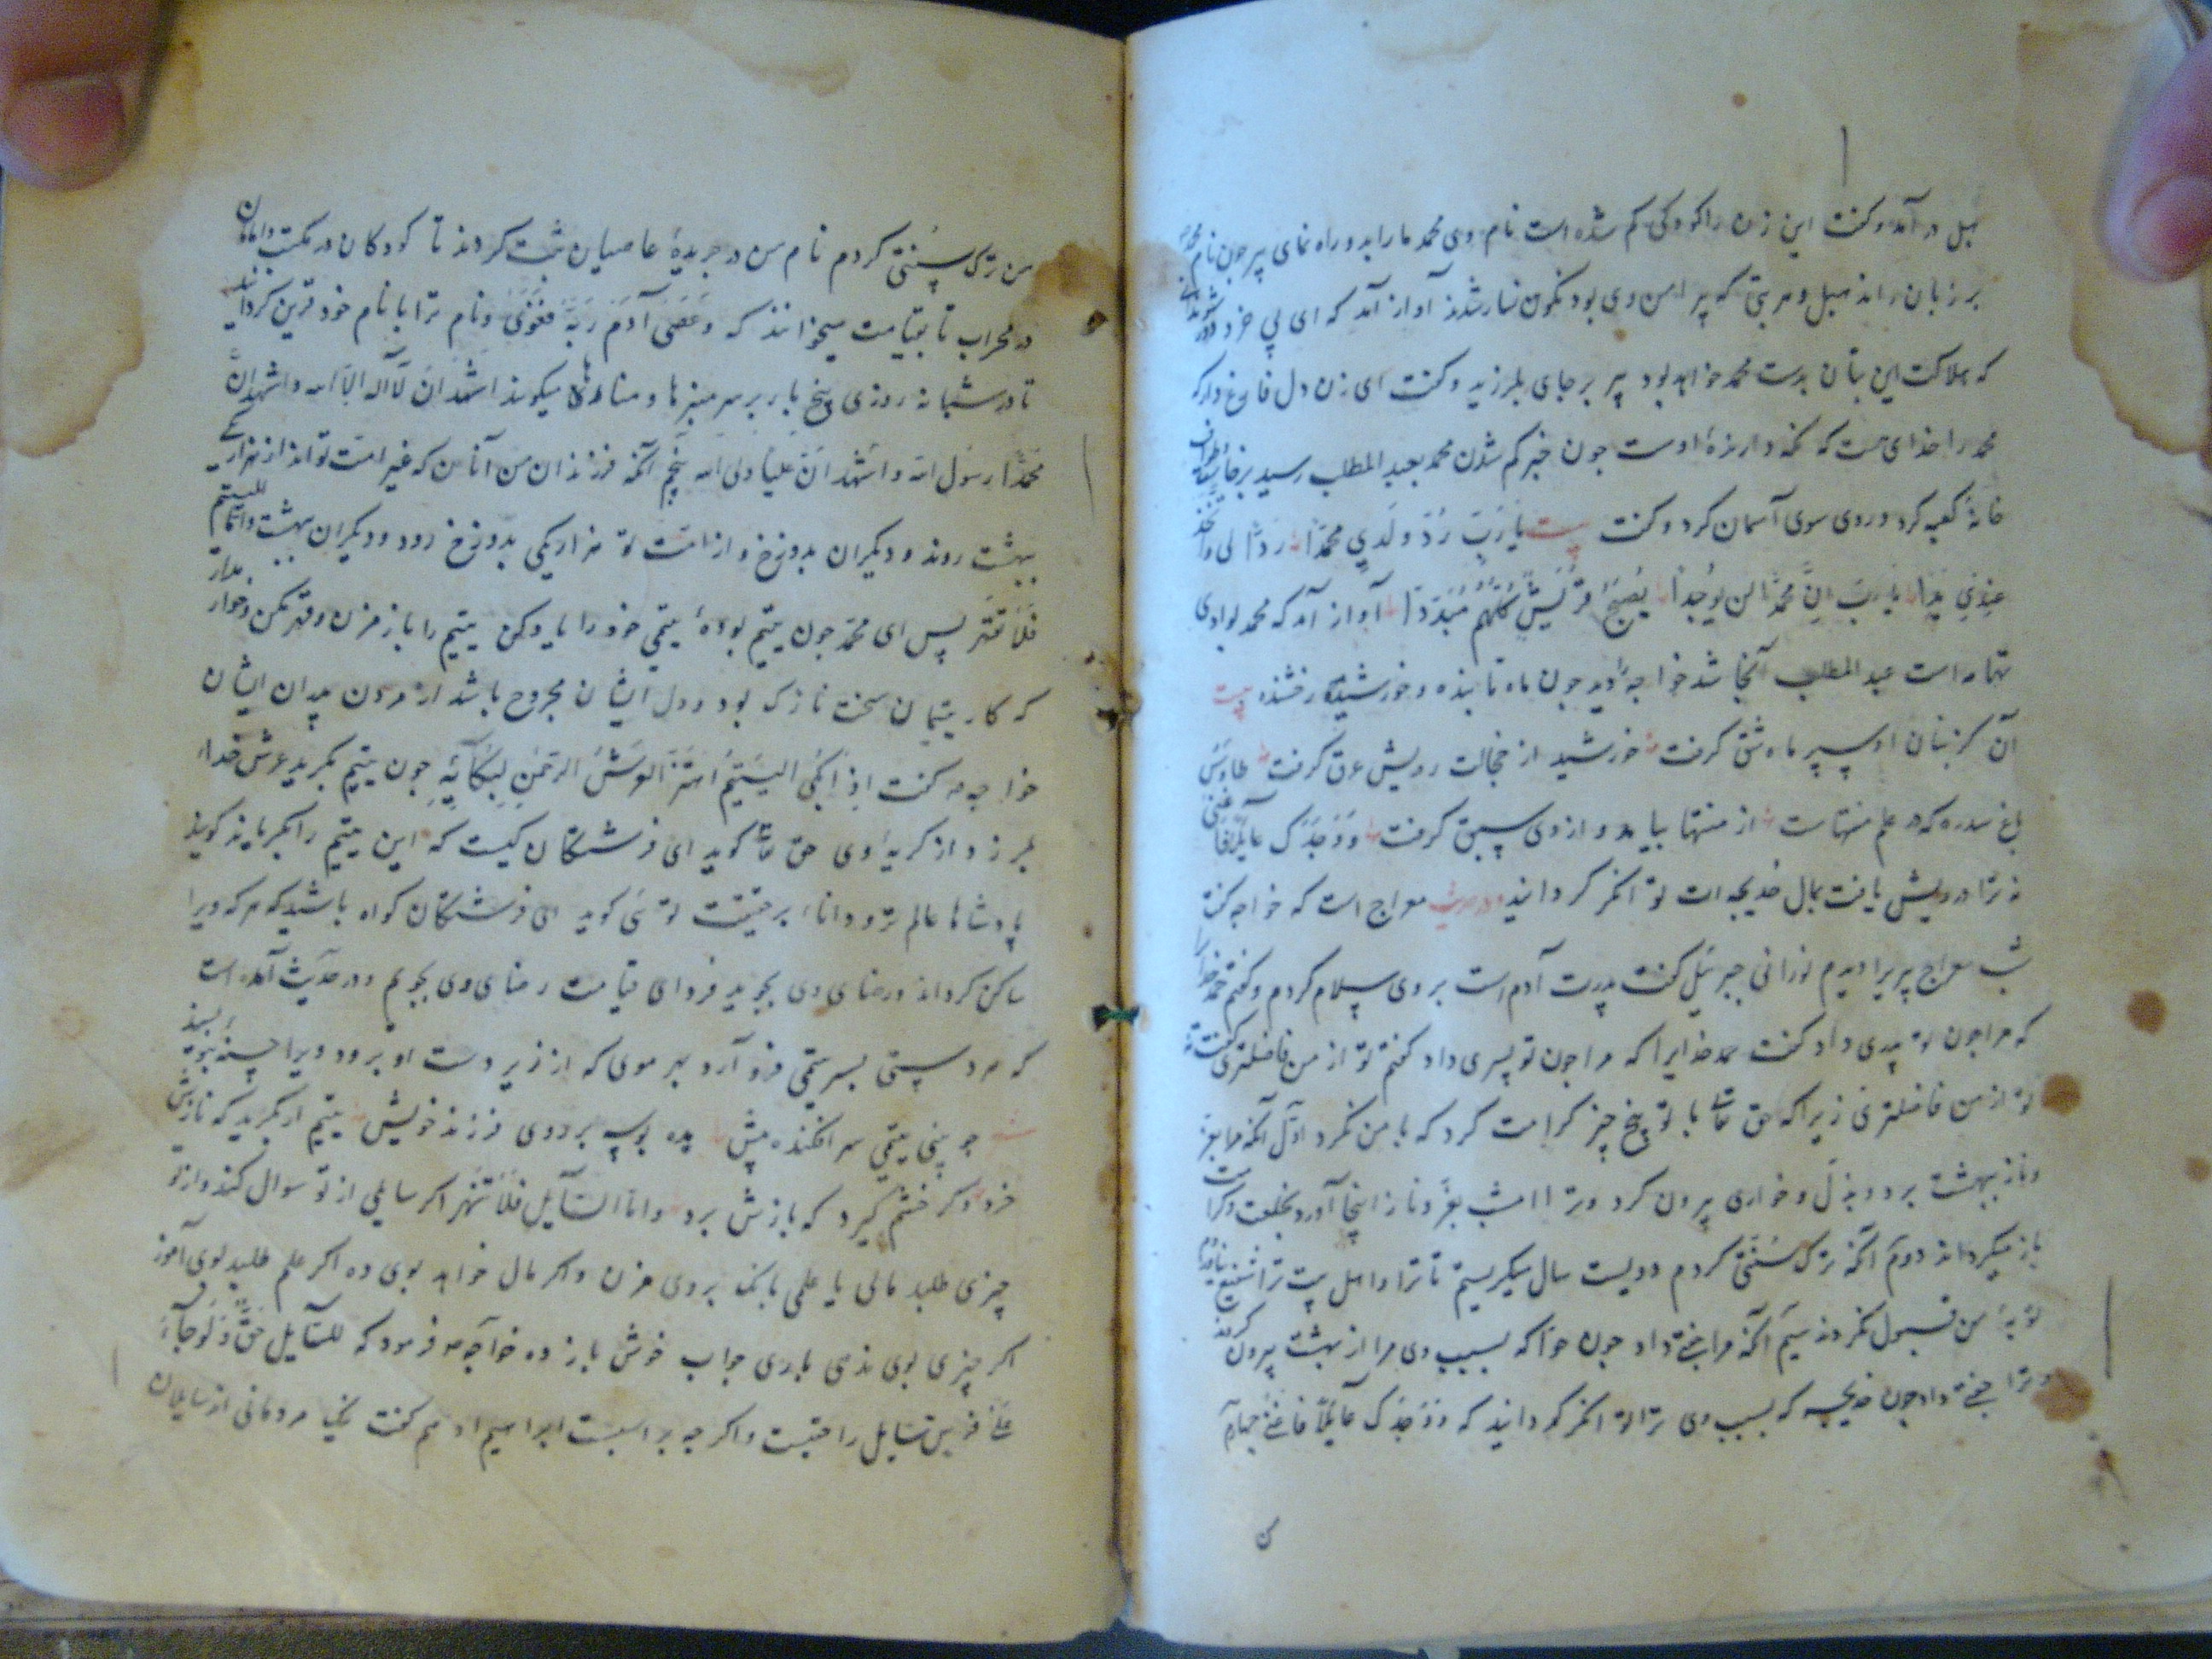 هبل در آمد و کفت این زن را کودکی کم شده است نام وی محمد ما را بدو راه نمای پیر جون نام محمد
بر زبان راند هبل و هر بتی که پیرامن وی بود نکون سار شدند آواز آمد که ای پی خرد دور شو
که هلاکت این بتان بدست محمد خواهد بود پیر بر جای بلرزید و کفت ای زن دل فارغ دار که
محمد را خدای هست که نکه دارندهٔ اوست جون خبر کم شدن محمد بعبد المطلب رسید برخاست طواف
خانهٔ کعبه کرد و روی سوی آسمان کرد و کفت بیت یا رَبِّ رُدَّ وَلَدِي مُحَمَّدَا رُدَّا لی و اتخذ
عِنْدِي یَدَا یا رَبِّ اِنَّ مُحَمَّدَا لن یُوجَدا یُصْبِحُ قُرَیْشٌ كُلُّهُمْ مُبَدَّدَا آواز آمد که محمد بوادی
تهامه است عبد المطلب آنجا شد خواجه را دید جون ماه تابنده و خورشید رخشنده بیت
آن کز بنان او سپر ماه شق کرفت خورشید از خجالت رویش عرق کرفت طاوس
باغ سدره که در علم منتهاست از منتها بیامد و از وی سبق کرفت وَوَجَدَكَ عَآئِلًا فَاَغْنٰی
نه ترا درویش یافت بمال خدیجه ات توانکر کردانید و در حدیث معراج است که خواجه کفت
شب معراج پیری را دیدم نورانی جبرئیل کفت پدرت آدم است بر وی سلام کردم و کفتم حمد خدا را
که مرا جون تو پدری داد کفت حمد خدایرا که مرا جون تو پسری داد کفتم تو از من فاضلتری کفت نه
تو از من فاضلتری زیرا که حق تعالی با تو پنج چیز کرامت کرد که با من نکرد اوّل آنکه مرا بعز
و ناز ببهشت برد و بذلّ و خواری بیرون کرد و ترا امشب بعزّ و ناز اینجا آورد بخلعت و کرامت
باز میکرداند دوم آنکه ترک سُنّتی کردم دویست سال میکریستم تا ترا و اهل بیت ترا شفیع نیاوردم
توبهٔ من قبول نکردند سیم آنکه مرا جفتی داد جون حوّا که بسبب وی مرا از بهشت بیرون کردند
و ترا جفتی داد جون خدیجه که بسبب وی ترا توانکر کردانید که وَوَجَدَكَ عَآئِلًا فَاَغْنٰی چهارم
من ترک سنتی کردم نام من در جریدهٔ عاصیان ثبت کردند تا کودکان در مکتب و امامان
در محراب تا بقیامت میخوانند که وَعَصٰی آدَمُ رَبَّهُ فَغَوٰی و نام ترا با نام خود قرین کردانید
تا در شبانه روزی پنج بار بر سر منبرها و منارها میکویند اَشْهَدُ اَنْ لَآ اِلٰهَ اِلَّا الله و اشهد انّ
مُحَمَّدًا رَسُولُ الله و اَشْهَدُ اَنَّ عَلِیًّا ولی الله پنجم آنکه فرزندان من آنان که غیر امّت تواند از هزار یکی
ببهشت روند و دیکران بدوزخ و از امّت تو هزار یکی بدوزخ رود و دیکران ببهشت و اَمَّا الیتیم
فَلَا تَقْهَر پس ای محمّد جون یتیم بودهٔ یتیمی خود را یاد کن یتیم را باز مزن و قهر مکن و خوار مدار
که کار یتیمان سخت نازک بود و دل ایشان مجروح باشد از مردن پدران ایشان
خواجه ص کفت اِذَا بَکَی الیَتِیمُ اهْتَزَّ العَرْشُ الرَّحْمٰنِ لِبُكَآئِهِ جون یتیم بکرید عرش خدا
بلرزد و از کریهٔ وی حق تعالی کوید ای فرشتکان کیست که این یتیم را بکریانید کویند
پادشاها عالم تو و دانا بر حقیقت توئی کوید ای فرشتکان کواه باشید که هر که ویرا
ساکن کرداند و رضای وی بجوید فردای قیامت رضای وی بجویم و در حدیث آمده است
که هر دستی بسر یتیمی فرو آرد بهر موی که از زیر دست او برود ویرا حسنهٔ بنویسند
جو بینی یتیمی سر افکنده پیش مده بوسه بر روی فرزند خویش یتیم ار بکرید که نازش
خرد و کر خشم کیرد که بازش برد و اَمَّا السَّآئِلَ فَلَا تَنْهَر اکر سایلی از تو سوال کند و از تو
چیزی طلبد مالی یا علمی بانک بر وی مزن و اکر مال خواهد بوی ده اکر علم طلبد بوی آموز
اکر چیزی بوی ندهی باری جواب خوش باز ده خواجه ص فرمود که لِلسَّآئِلِ حَقٌّ وَ لَوْ جَآءَ
عَلٰی فَرَسٍ سایل را حقیست و اکر چه بر اسبست ابراهیم ادهم کفت نیک مردمانی از سایلان